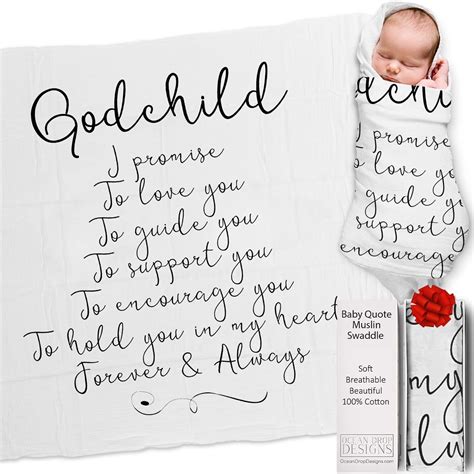 Godchild
I promise
To love you
To guide you
To support you
To encourage you
To hold you in my heart
Forever & Always
dchi
I promise
To love you
To guide you
To support
To encourage
Baby Quote
Muslin
Swaddle
Soft
Breathable
Beautiful
100% Cotton
OCEAN DROP
DESIGNS
OceanDropDesigns.com
my